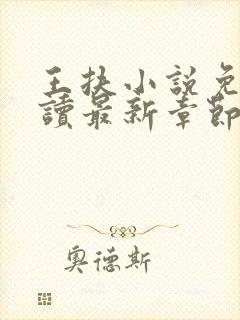 王扶小說免
讀最新章節
奧德斯